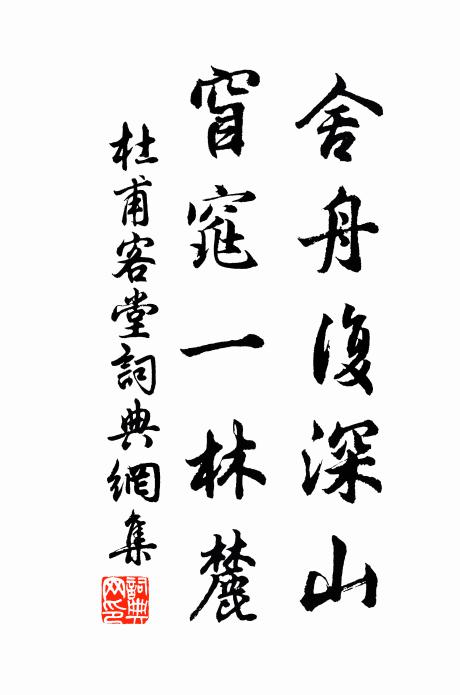 舍舟復深山
窅窕一林麓
杜甫客堂詞典網集
詞典网印